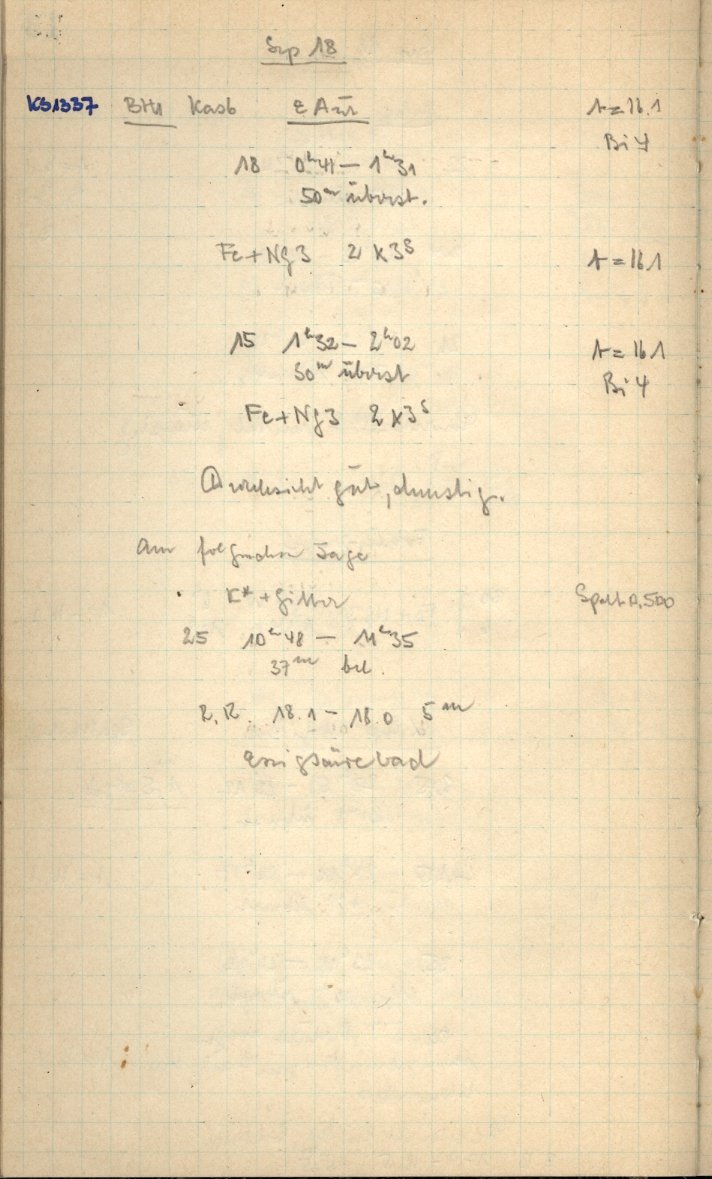 Sep 18
KS1337 BH1 Kasb ε Aur t=16.1
Bi 4
18 0ʰ41 – 1ʰ31
50ᵐ überst.
Fe+Ng3 2 x 3ˢ t=16.1
15 1ʰ32 – 2ʰ02 t=16.1
30ᵐ überst Bi 4
Fe+Ng3 2 x 3ˢ
Durchsicht gut, dunstig.
Am folgenden Tage
K* + Gitter Spalt 0,500
25 10ʰ48 – 11ʰ35
37ᵐ bel.
18.1 – 18.0 5ᵐ
Essigsäurebad